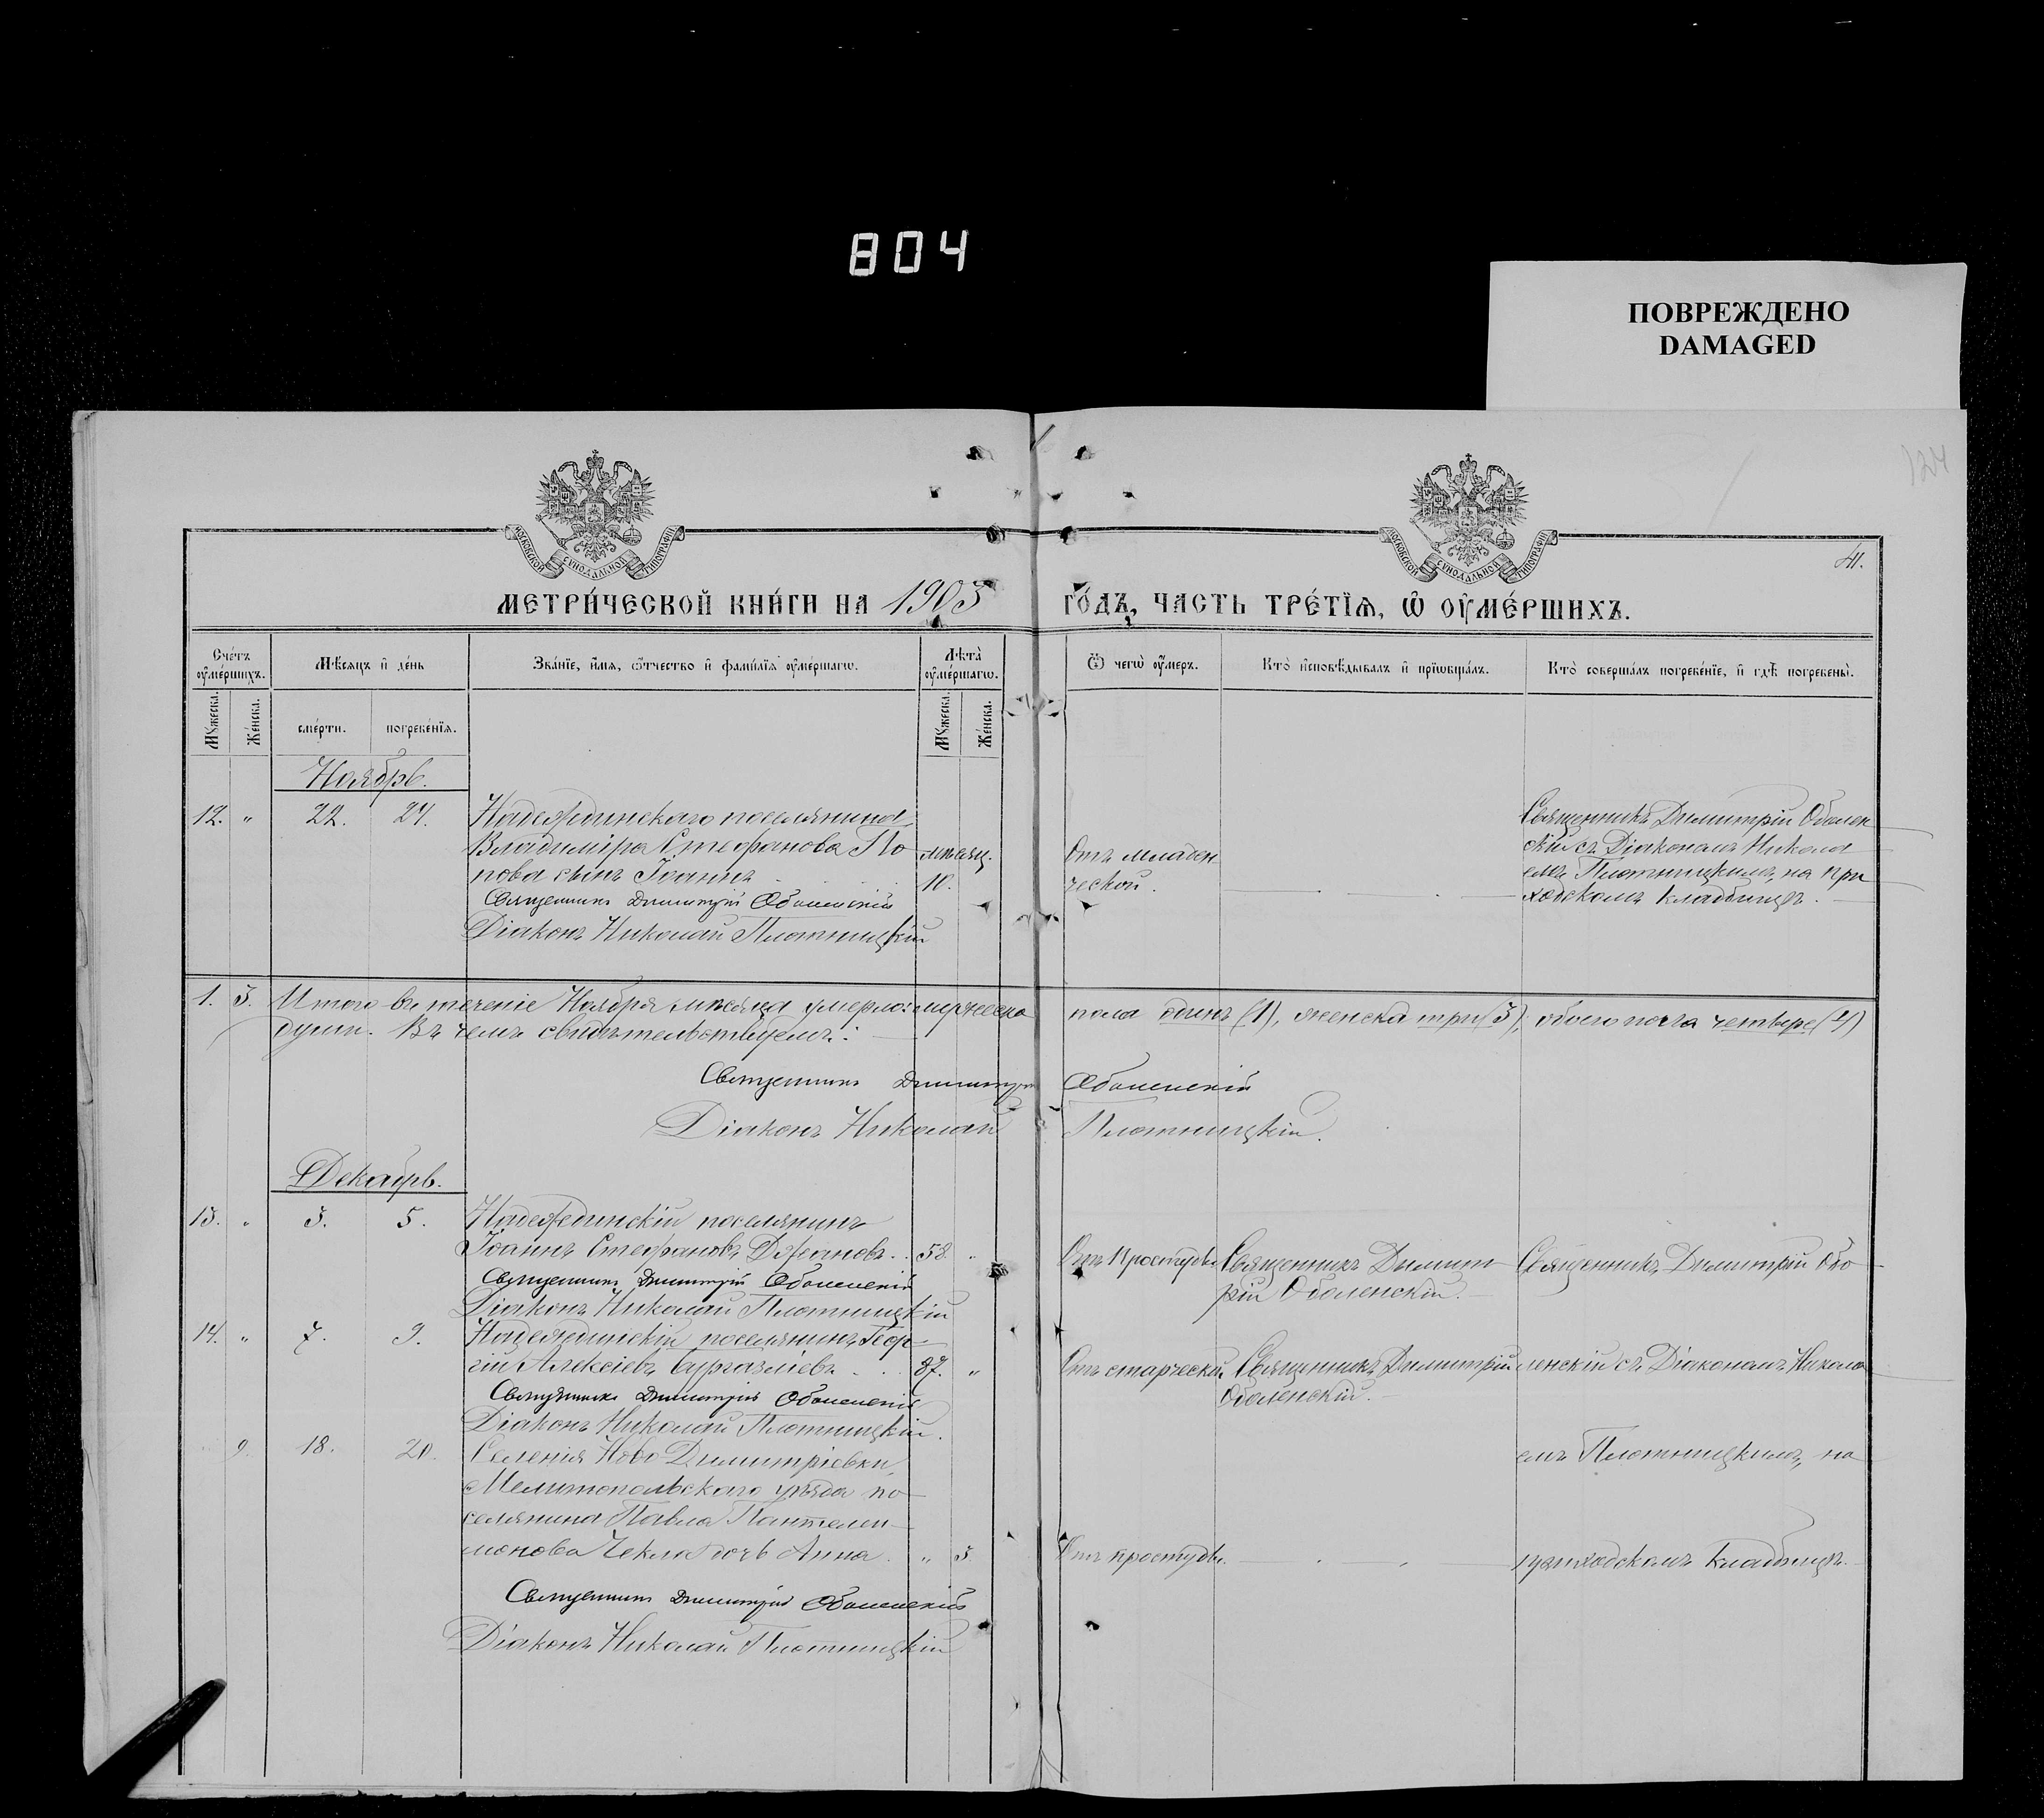 804
ПОВРЕЖДЕНО
DAMAGED
41.
МОСКОВСКОЙ СѴНОДАЛЬНОЙ ТИПОГРАФІИ
МОСКОВСКОЙ СѴНОДАЛЬНОЙ ТИПОГРАФІИ
МЕТРИ́ЧЕСКОЙ КНИ́ГИ НА 1903 ГО́ДЪ, ЧАСТЬ ТРЕ́ТІѦ, Ѡ҆ ОУ҆МЕ́РШИХЪ.
Сче́тъ оу҆ме́ршихъ.
Мѣ́сяцъ и҆ де́нь
Зва́нїе, и҆́мя, ѻ҆́тчество и҆ фами́лїя оу҆ме́ршагѡ.
Лѣта̀ оу҆ме́ршагѡ.
Ѿ чегѡ̀ оу҆́меръ.
Кто̀ и҆сповѣ́дывалъ и҆ прїѡбща́лъ.
Кто̀ соверша́лъ погребе́нїе, и҆ гдѣ̀ погребены̀.
Мꙋ́жеска.
Же́нска.
сме́рти.
погребе́нїя.
Мꙋ́жеска.
Же́нска.
Ноябрь.
12. „ 22. 24. Надеждинскаго поселянина
Владиміра Стефанова По
пова сынъ Іоаннъ
мѣсяц.
10.
Священникъ Димитрій Оболенскій
Діаконъ Николай Плотницкій
Отъ младен
ческой.
Священникъ Димитрій Оболен
скій съ Діакономъ Никола
емъ Плотницкимъ, на при
ходскомъ кладбищѣ.
1. 3. Итого въ теченіе Ноября мѣсяца умерло: мужеска пола одинъ (1), женска три (3), обоего пола четыре (4)
души. Въ чемъ свидѣтельствуемъ:
Священникъ Димитрій Оболенскій
Діаконъ Николай Плотницкій.
Декабрь.
13. „ 3. 5. Надеждинскій поселянинъ
Іоаннъ Стефановъ Джановъ . . 58. „
Священникъ Димитрій Оболенскій
Діаконъ Николай Плотницкій
Отъ простуды
Священникъ Димит
рій Оболенскій.
Священникъ Димитрій Обо
14. „ 7. 9. Надеждинскій поселянинъ Геор
гій Алексіевъ . . 87. „
Священникъ Димитрій Оболенскій
Діаконъ Николай Плотницкій.
Отъ старческой
Священникъ Димитрій
Оболенскій.
ленскій съ Діакономъ Никола
9. 18. 20. Селенія Ново Димитріевки,
Мелитопольскаго уѣзда по
селянина Павла Пантелеи
монова Чекла дочь Анна . „ 3
Священникъ Димитрій Оболенскій
Діаконъ Николай Плотницкій
Отъ простуды.
емъ Плотницкимъ, на
приходскомъ кладбищѣ.